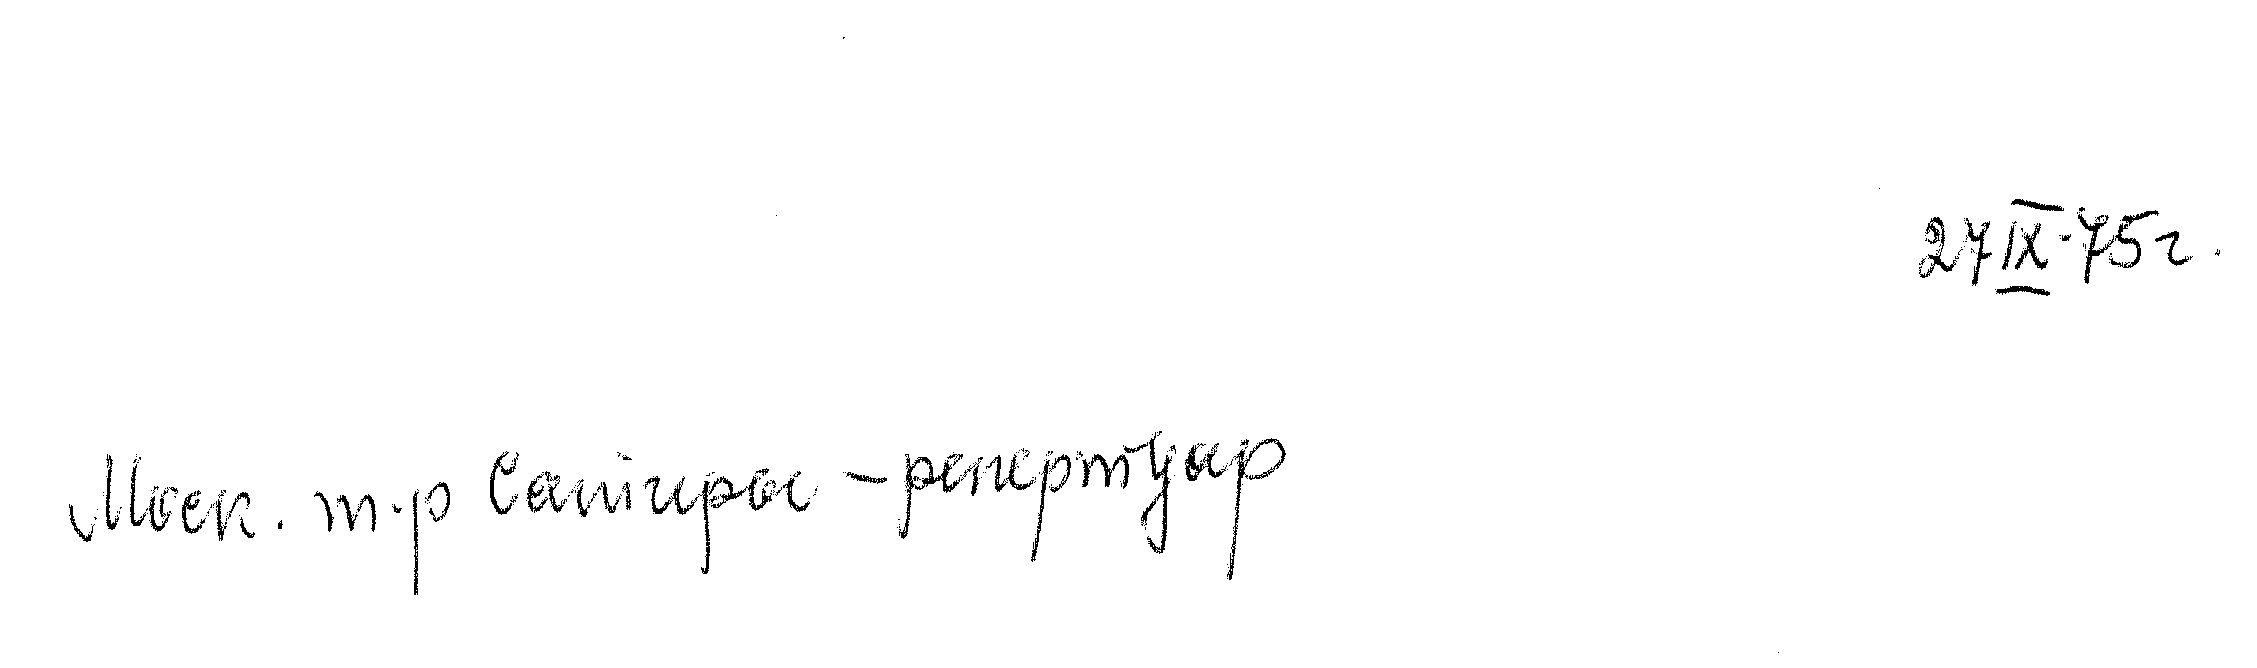 27 IX-75г.
Моск. т-р Сатиры - репертуар